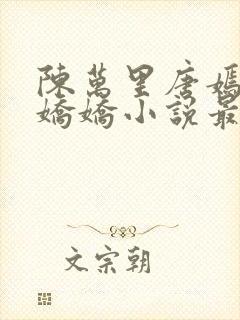 陳萬里唐嫣
嬌嬌小說最
文宗朝